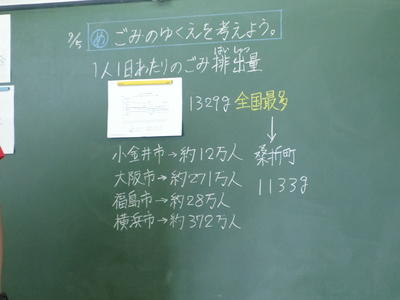 9/5 め ごみのゆくえを考えよう。
1人1日あたりのごみ排出量
はいしゅつ
1329g 全国最多
↓
小金井市→約12万人 桑折町
大阪市→約271万人 1133g
福島市→約28万人
横浜市→約372万人